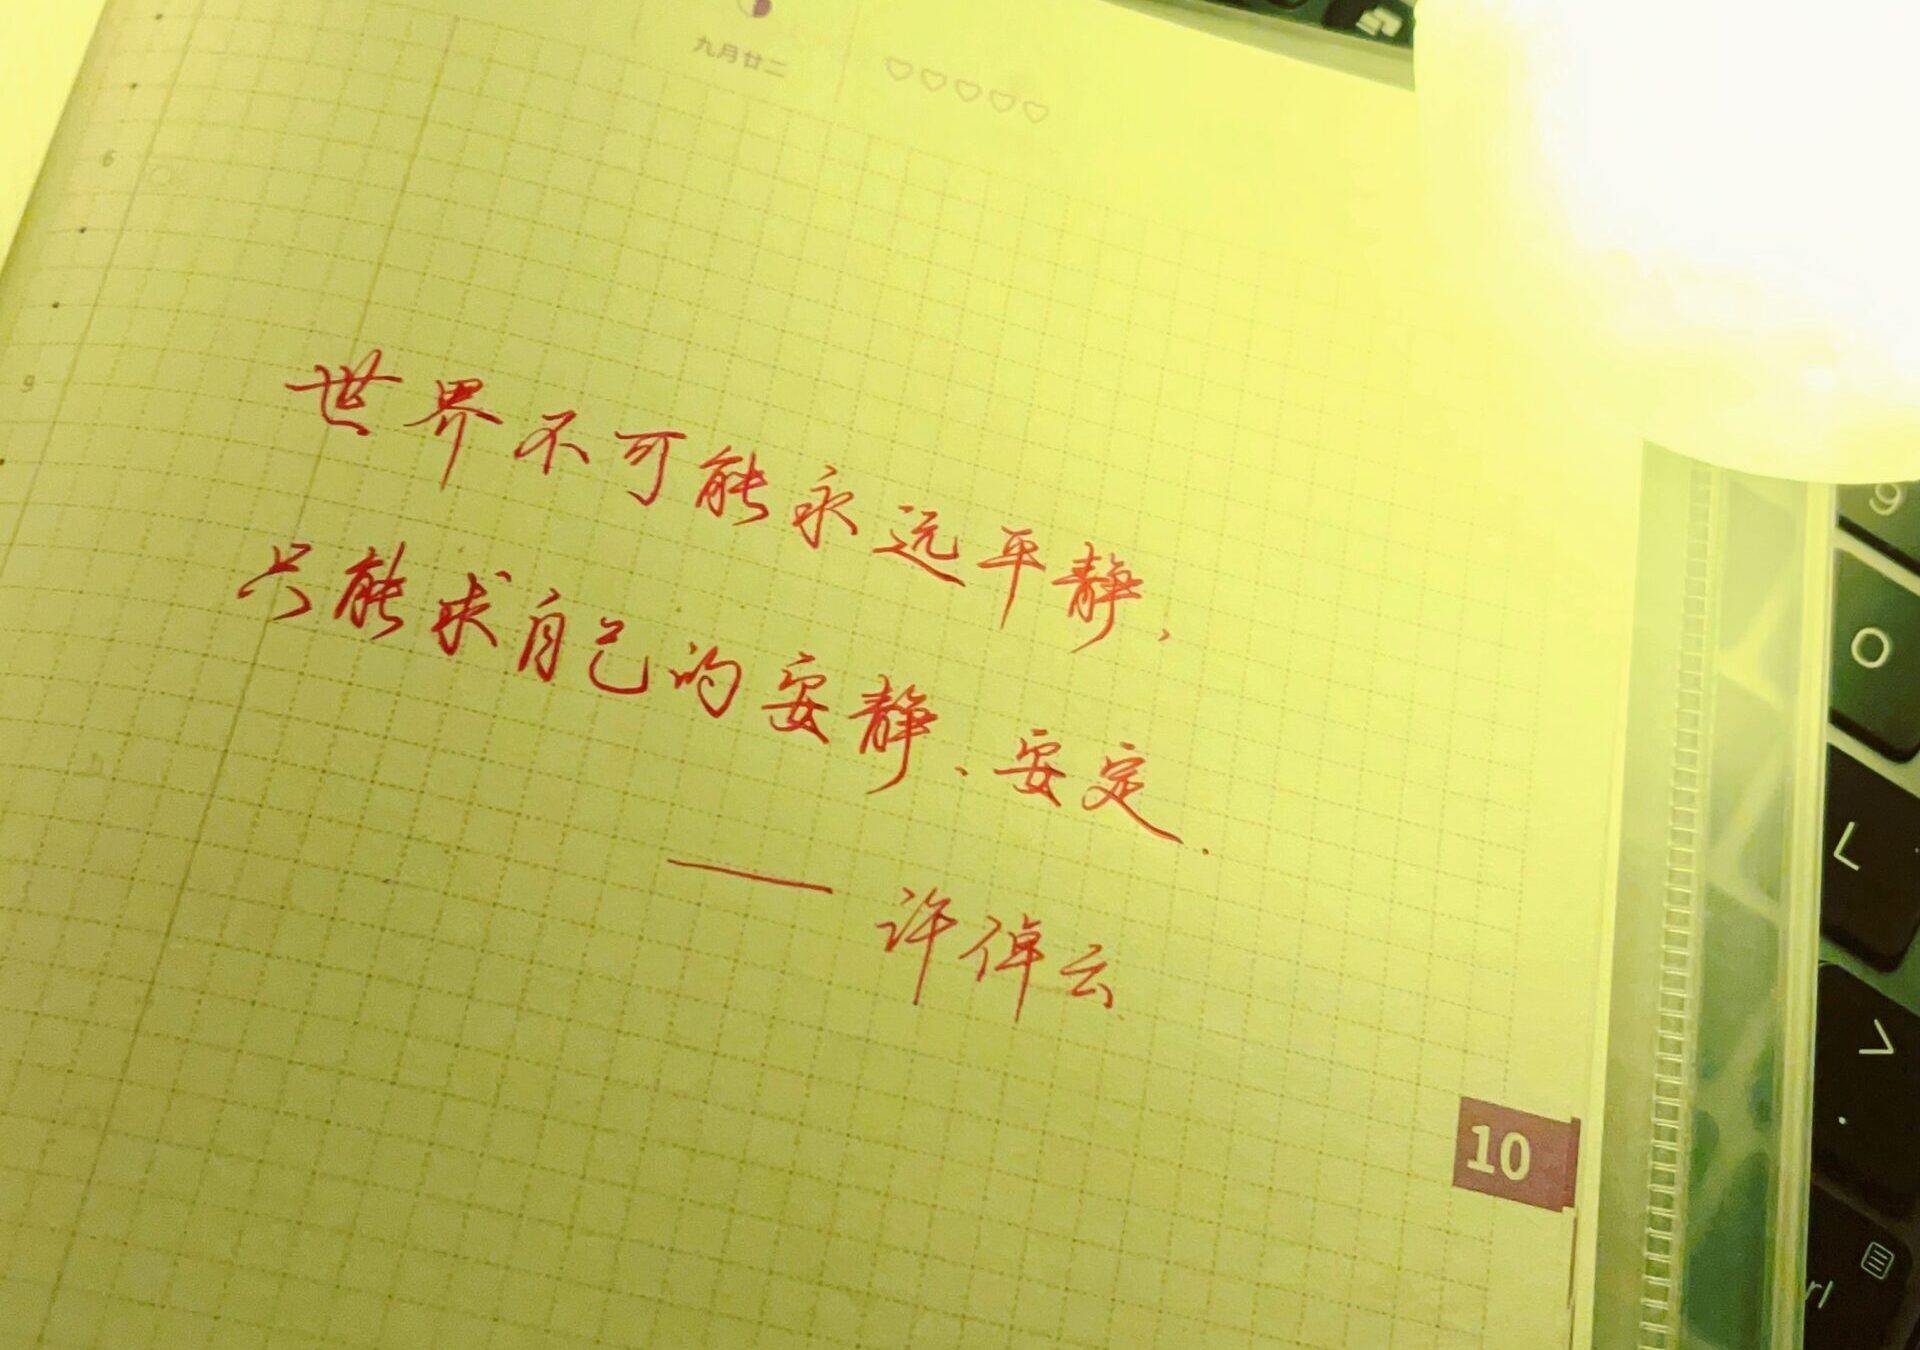 九月廿二
♡♡♡♡♡
6
9
世界不可能永远平静，
只能求自己的安静、安定.
——许倬云
10
9
O
L
>
.
rl